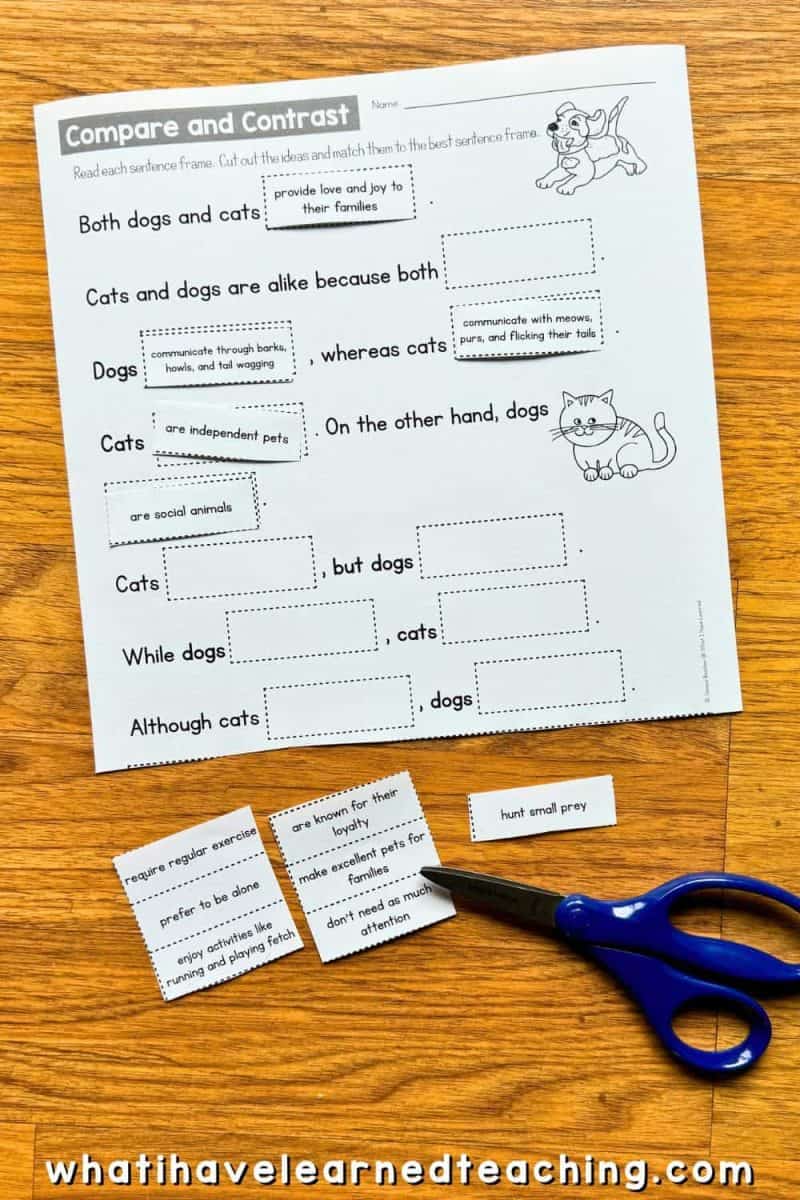 Compare and Contrast
Name
Read each sentence frame. Cut out the ideas and match them to the best sentence frame.
Both dogs and cats provide love and joy to their families .
Cats and dogs are alike because both .
Dogs communicate through barks, howls, and tail wagging , whereas cats communicate with meows, purs, and flicking their tails .
Cats are independent pets . On the other hand, dogs
are social animals .
Cats , but dogs .
While dogs , cats .
Although cats , dogs .
require regular exercise
prefer to be alone
enjoy activities like
running and playing fetch
are known for their
loyalty
make excellent pets for
families
don't need as much
attention
hunt small prey
whatihavelearnedteaching.com